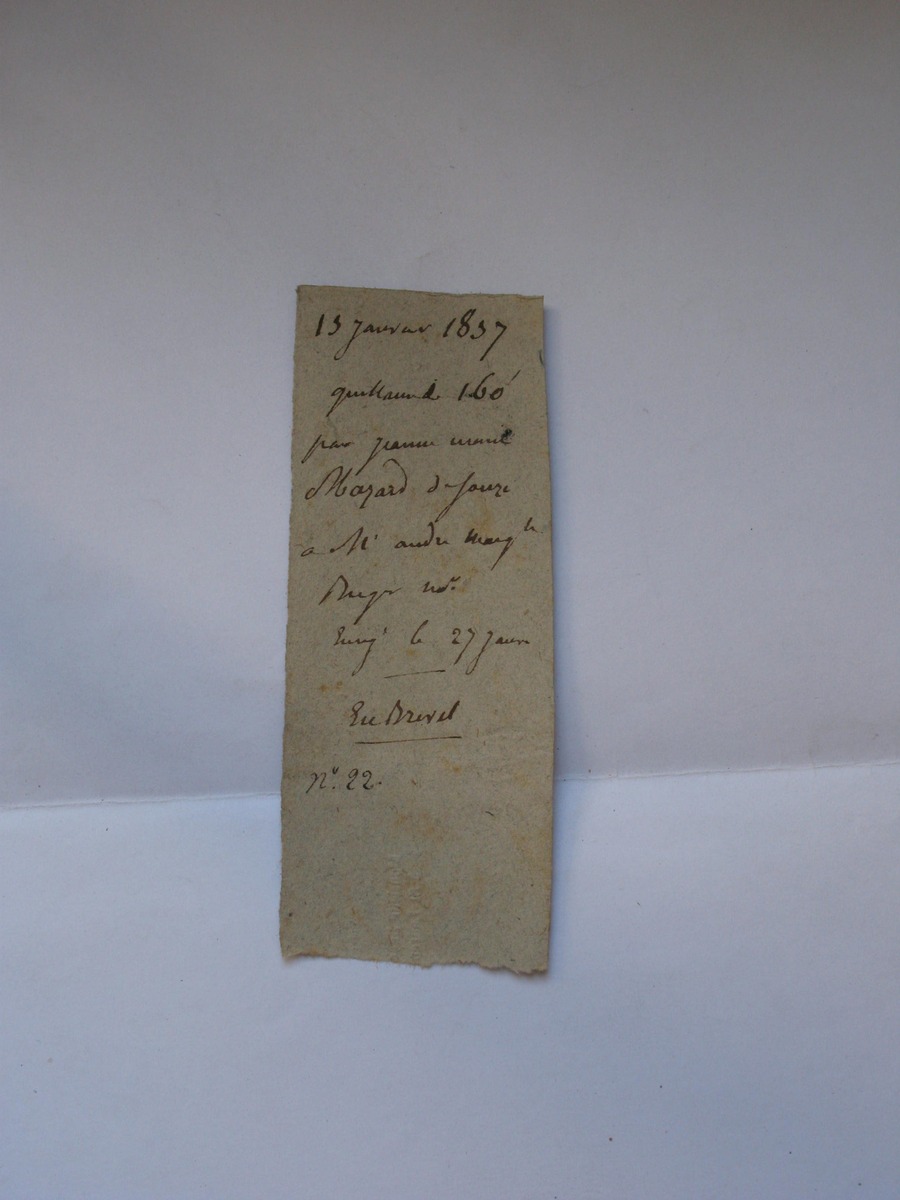 13 Janvier 1837
quittance 160
par jeanne marie
Mazard de
a Mr andre
nre
Enrg le 27 Janv
En Brevet
No. 22.